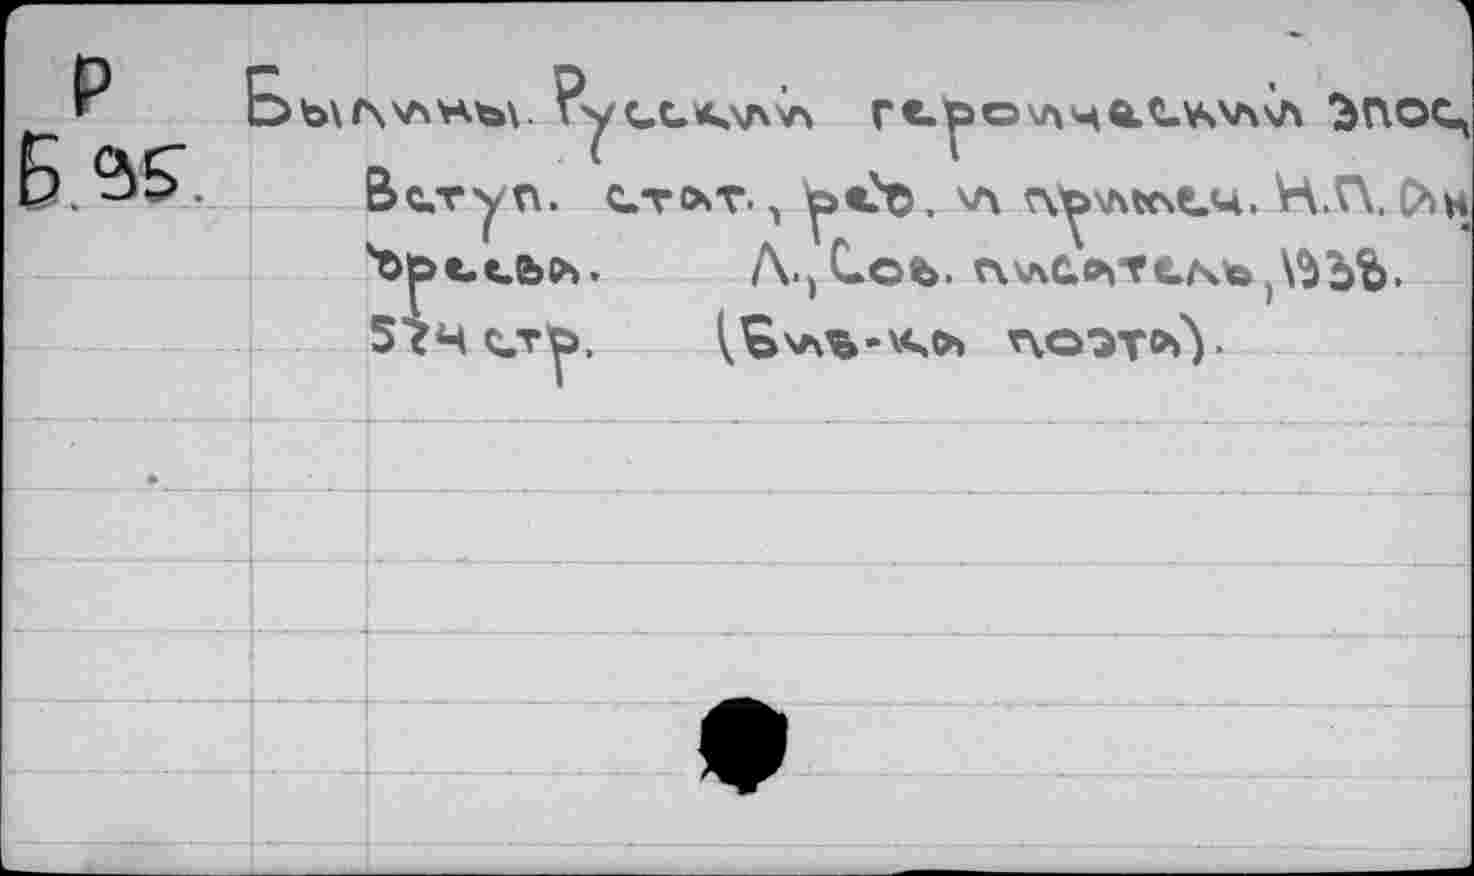 Р Былины. Русский героический эпос,
Б.95. Вступ. стат., ред. и примеч. Н.П. Ан
дреева. Л., Сов. писатель, 1938.
574 стр. (Биб-ка поэта).